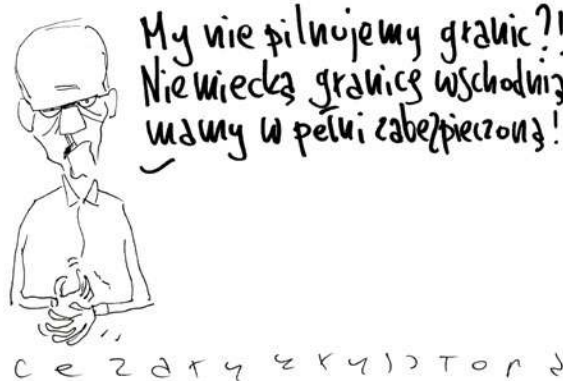 My nie pilnujemy granic?!
Niemiecką granicę wschodnią
mamy w pełni zabezpieczoną!
cezary krysztopa